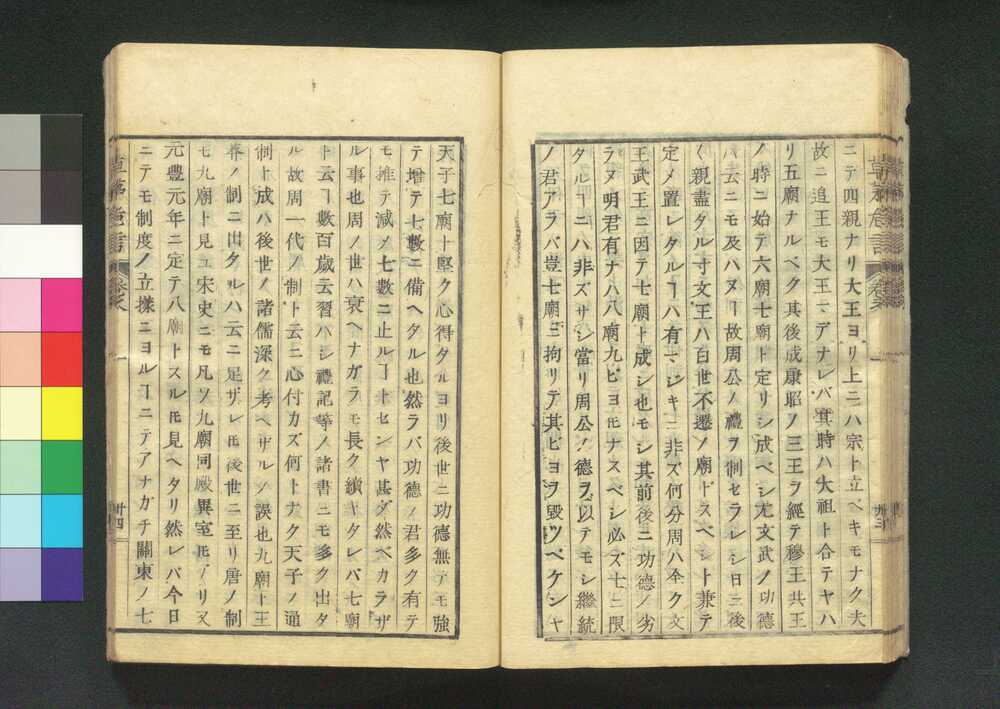 ニテ四親ナリ大王ヨリ上ニハ宗ト立ベキモナク夫
故ニ追王モ大王マデナレバ其時ハ大祖ト合テヤハ
リ五廟ナルベク其後成康昭ノ三王ヲ經テ穆王共王
ノ時ニ始テ六廟七廟ト定リシ成ベシ尤文武ノ功德
ハ云ニモ及ハヌヿ故周公ノ禮ヲ制セラレシ日ニ後
く親盡タル寸文王ハ百世不遷ノ廟ドスベシト兼テ
定メ置レタルヿハ有マジキニ非ズ何分周ハ全ク文
王武王ニ因テ七廟ト成シ也モシ其前後ニ功德ノ劣
ラヌ明君有ナハ八廟九ビヨモナスベシ必ズ七ニ限
タルヿニハ非ズサシ當リ周公ノ德ヲ以テモシ繼統
ノ君アラバ豈七廟ニ拘リテ其ビヨヲ毀ツベケンヤ
天子七廟ト堅ク心得タルヨリ後世ニ功德無テモ強
テ增テ七數ニ備ヘタル也然ラバ功德ノ君多ク有テ
モ推テ減メ七數ニ止ルヿトセンヤ甚ダ然ベカラザ
ル事也周ノ世ハ衰ヘナガラモ長ク續キタレバ七廟
ト云ヿ數百歲云習ハシ禮記等ノ諸書ニモ多ク出タ
ル故周一代ノ制ト云ニ心付カズ何トナク天子ノ通
制ト成ハ後世ノ諸儒深ク考ヘザルノ誤也九廟ト王
莽ノ制ニ出タルハ云ニ足ザレ𪜈後世ニ至リ唐ノ制
モ九廟ト見ユ宋史ニモ凡ソ九廟同殿異室𪜈アリ又
元豐元年ニ定テ八廟トスル𪜈見ヘタリ然レバ今日
ニテモ制度ノ立樣ニヨルヿニテアナガチ關東ノ七
草茅危言
卷之
卅三
草茅危言
卷之
卅四